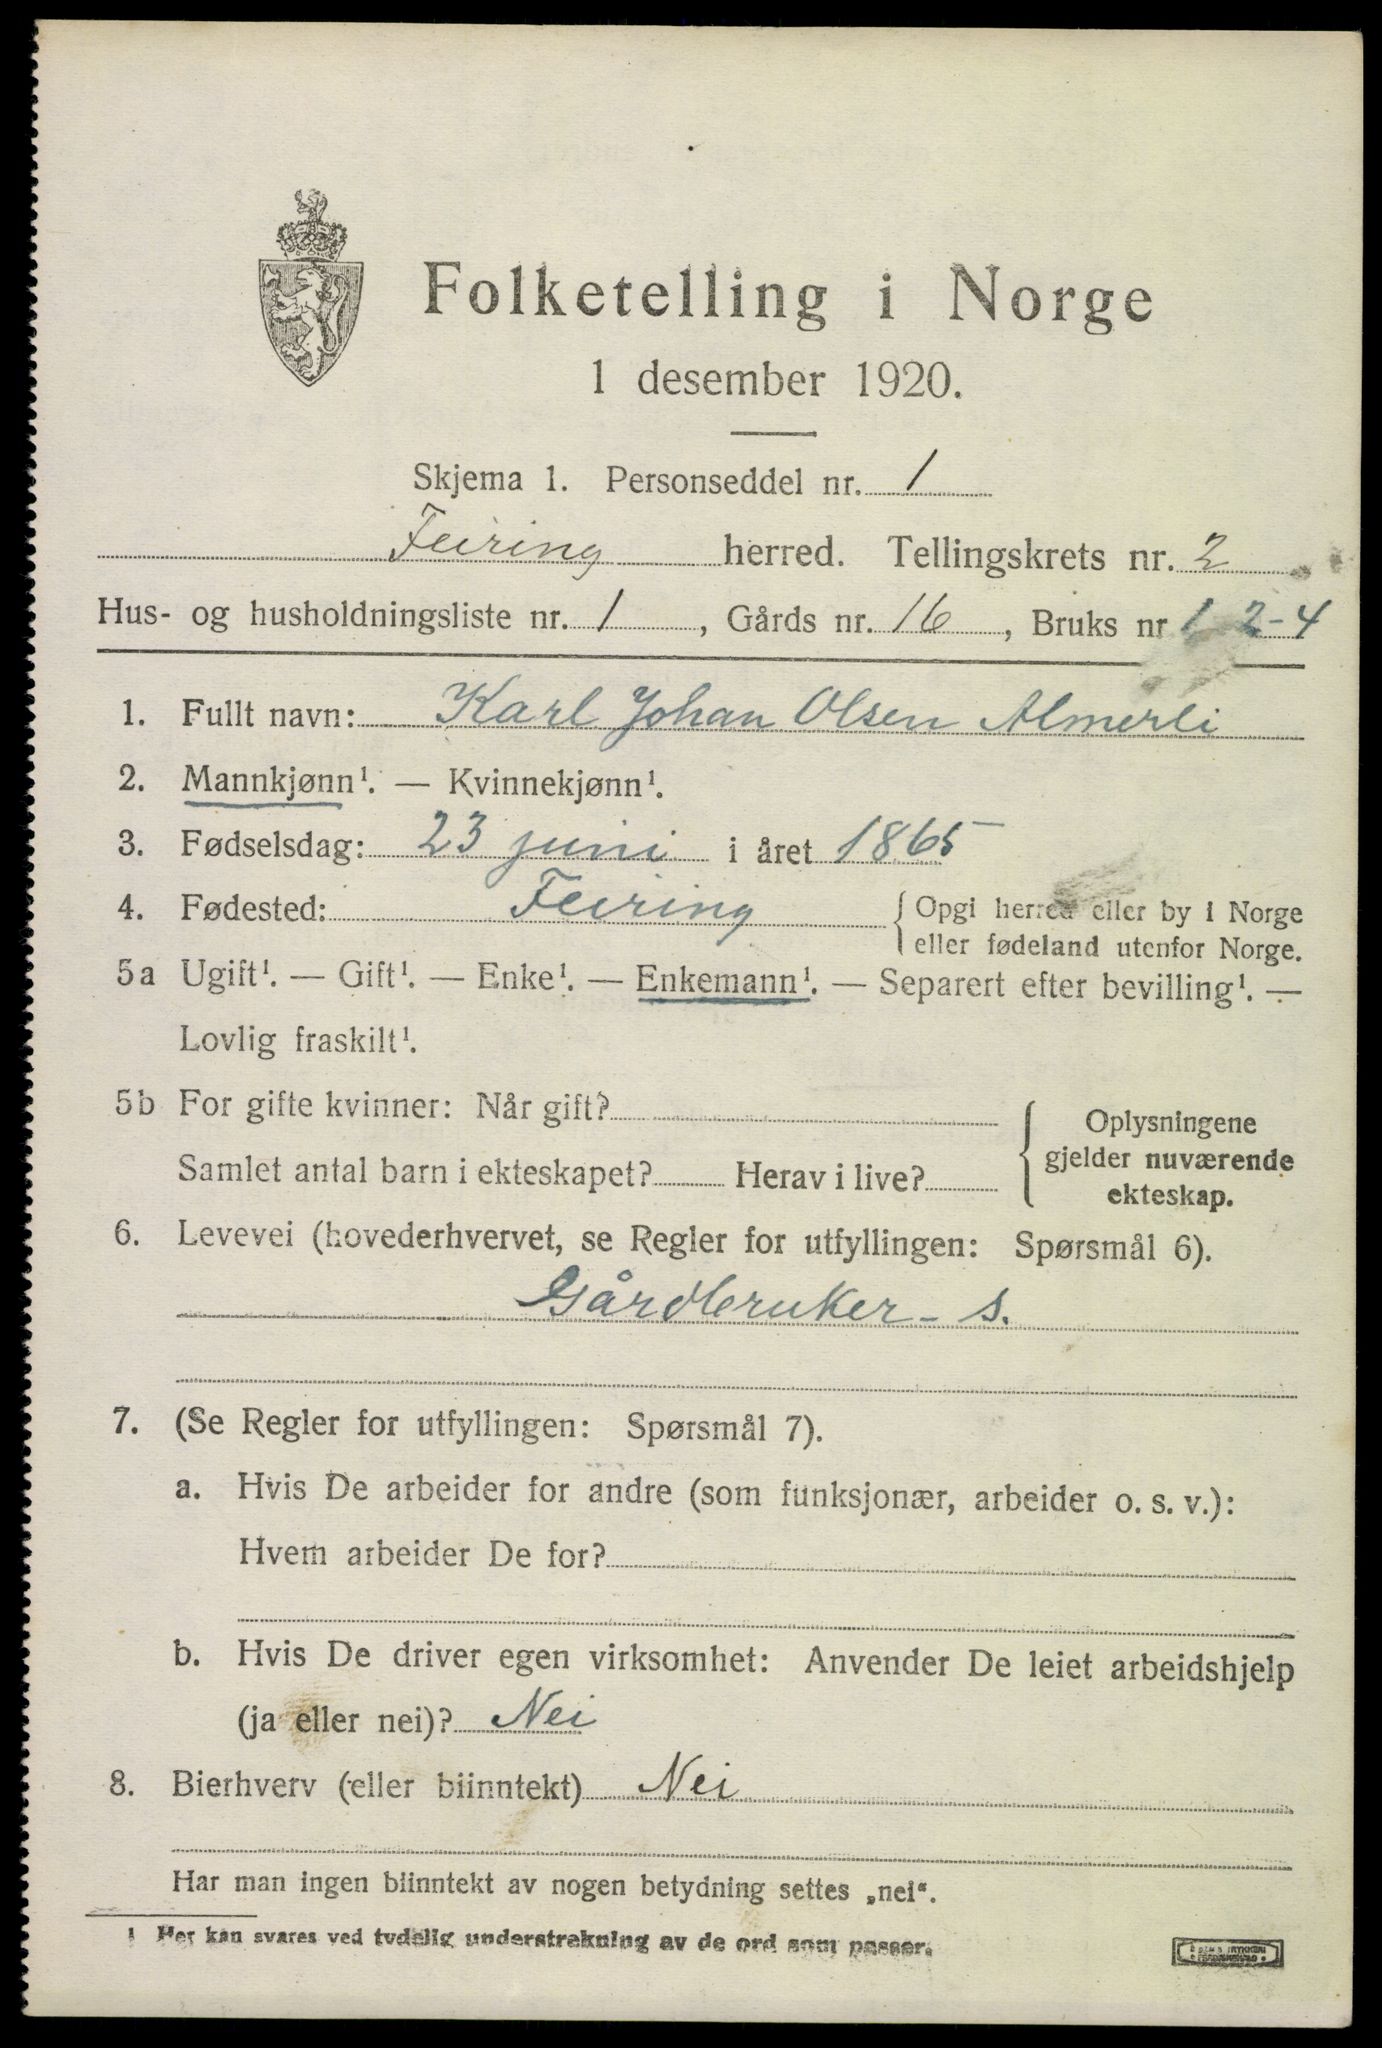 Folketelling i Norge
1 desember 1920.
Skjema 1. Personseddel nr. 1
Feiring herred. Tellingskrets nr. 2
Hus- og husholdningsliste nr. 1, Gårds nr. 16, Bruks nr 1 2-4
1. Fullt navn: Karl Johan Olsen Almerli
2. Mannkjønn¹. — Kvinnekjønn¹.
3. Fødselsdag: 23 juni i året 1865
4. Fødested: Feiring { Opgi herred eller by i Norge
eller fødeland utenfor Norge.
5a Ugift¹. — Gift¹. — Enke¹. — Enkemann¹. — Separert efter bevilling¹. —
Lovlig fraskilt¹.
5b For gifte kvinner: Når gift?
Samlet antal barn i ekteskapet? Herav i live?
{ Oplysningene
gjelder nuværende
ekteskap.
6. Levevei (hovederhvervet, se Regler for utfyllingen: Spørsmål 6).
Gårdbruker - s.
7. (Se Regler for utfyllingen: Spørsmål 7).
a. Hvis De arbeider for andre (som funksjonær, arbeider o. s. v.):
Hvem arbeider De for?
b. Hvis De driver egen virksomhet: Anvender De leiet arbeidshjelp
(ja eller nei)? Nei
8. Bierhverv (eller biinntekt) Nei
Har man ingen biinntekt av nogen betydning settes „nei“.
1 Her kan svares ved tydelig understrekning av de ord som passer.